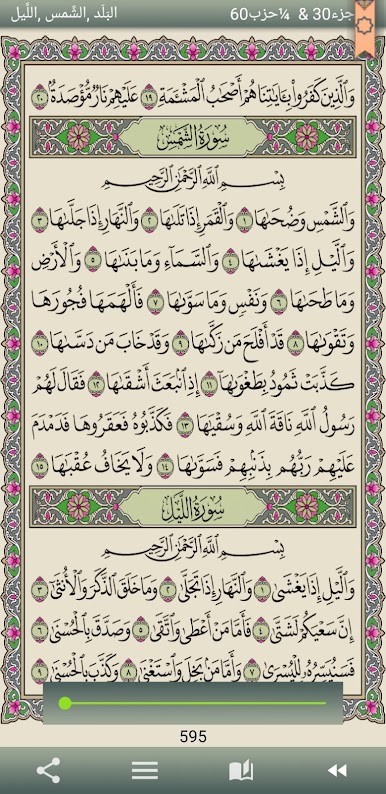 جزء30 & ¼حزب60 البَلَد, الشَّمس, الَّليل
وَٱلَّذِينَ كَفَرُواْ بِـَٔايَٰتِنَا هُمۡ أَصۡحَٰبُ ٱلۡمَشۡـَٔمَةِ ١٩ عَلَيۡهِمۡ نَارٞ مُّؤۡصَدَةُۢ ٢٠
سُورَةُ الشَّمْسِ
بِسۡمِ ٱللَّهِ ٱلرَّحۡمَٰنِ ٱلرَّحِيمِ
وَٱلشَّمۡسِ وَضُحَىٰهَا ١ وَٱلۡقَمَرِ إِذَا تَلَىٰهَا ٢ وَٱلنَّهَارِ إِذَا جَلَّىٰهَا ٣
وَٱلَّيۡلِ إِذَا يَغۡشَىٰهَا ٤ وَٱلسَّمَآءِ وَمَا بَنَىٰهَا ٥ وَٱلۡأَرۡضِ
وَمَا طَحَىٰهَا ٦ وَنَفۡسٖ وَمَا سَوَّىٰهَا ٧ فَأَلۡهَمَهَا فُجُورَهَا
وَتَقۡوَىٰهَا ٨ قَدۡ أَفۡلَحَ مَن زَكَّىٰهَا ٩ وَقَدۡ خَابَ مَن دَسَّىٰهَا ١٠
كَذَّبَتۡ ثَمُودُ بِطَغۡوَىٰهَآ ١١ إِذِ ٱنۢبَعَثَ أَشۡقَىٰهَا ١٢ فَقَالَ لَهُمۡ
رَسُولُ ٱللَّهِ نَاقَةَ ٱللَّهِ وَسُقۡيَٰهَا ١٣ فَكَذَّبُوهُ فَعَقَرُوهَا فَدَمۡدَمَ
عَلَيۡهِمۡ رَبُّهُم بِذَنۢبِهِمۡ فَسَوَّىٰهَا ١٤ وَلَا يَخَافُ عُقۡبَٰهَا ١٥
سُورَةُ اللَّيْلِ
بِسۡمِ ٱللَّهِ ٱلرَّحۡمَٰنِ ٱلرَّحِيمِ
وَٱلَّيۡلِ إِذَا يَغۡشَىٰ ١ وَٱلنَّهَارِ إِذَا تَجَلَّىٰ ٢ وَمَا خَلَقَ ٱلذَّكَرَ وَٱلۡأُنثَىٰٓ ٣
إِنَّ سَعۡيَكُمۡ لَشَتَّىٰ ٤ فَأَمَّا مَنۡ أَعۡطَىٰ وَٱتَّقَىٰ ٥ وَصَدَّقَ بِٱلۡحُسۡنَىٰ ٦
فَسَنُيَسِّرُهُۥ لِلۡيُسۡرَىٰ ٧ وَأَمَّا مَنۢ بَخِلَ وَٱسۡتَغۡنَىٰ ٨ وَكَذَّبَ بِٱلۡحُسۡنَىٰ ٩
595